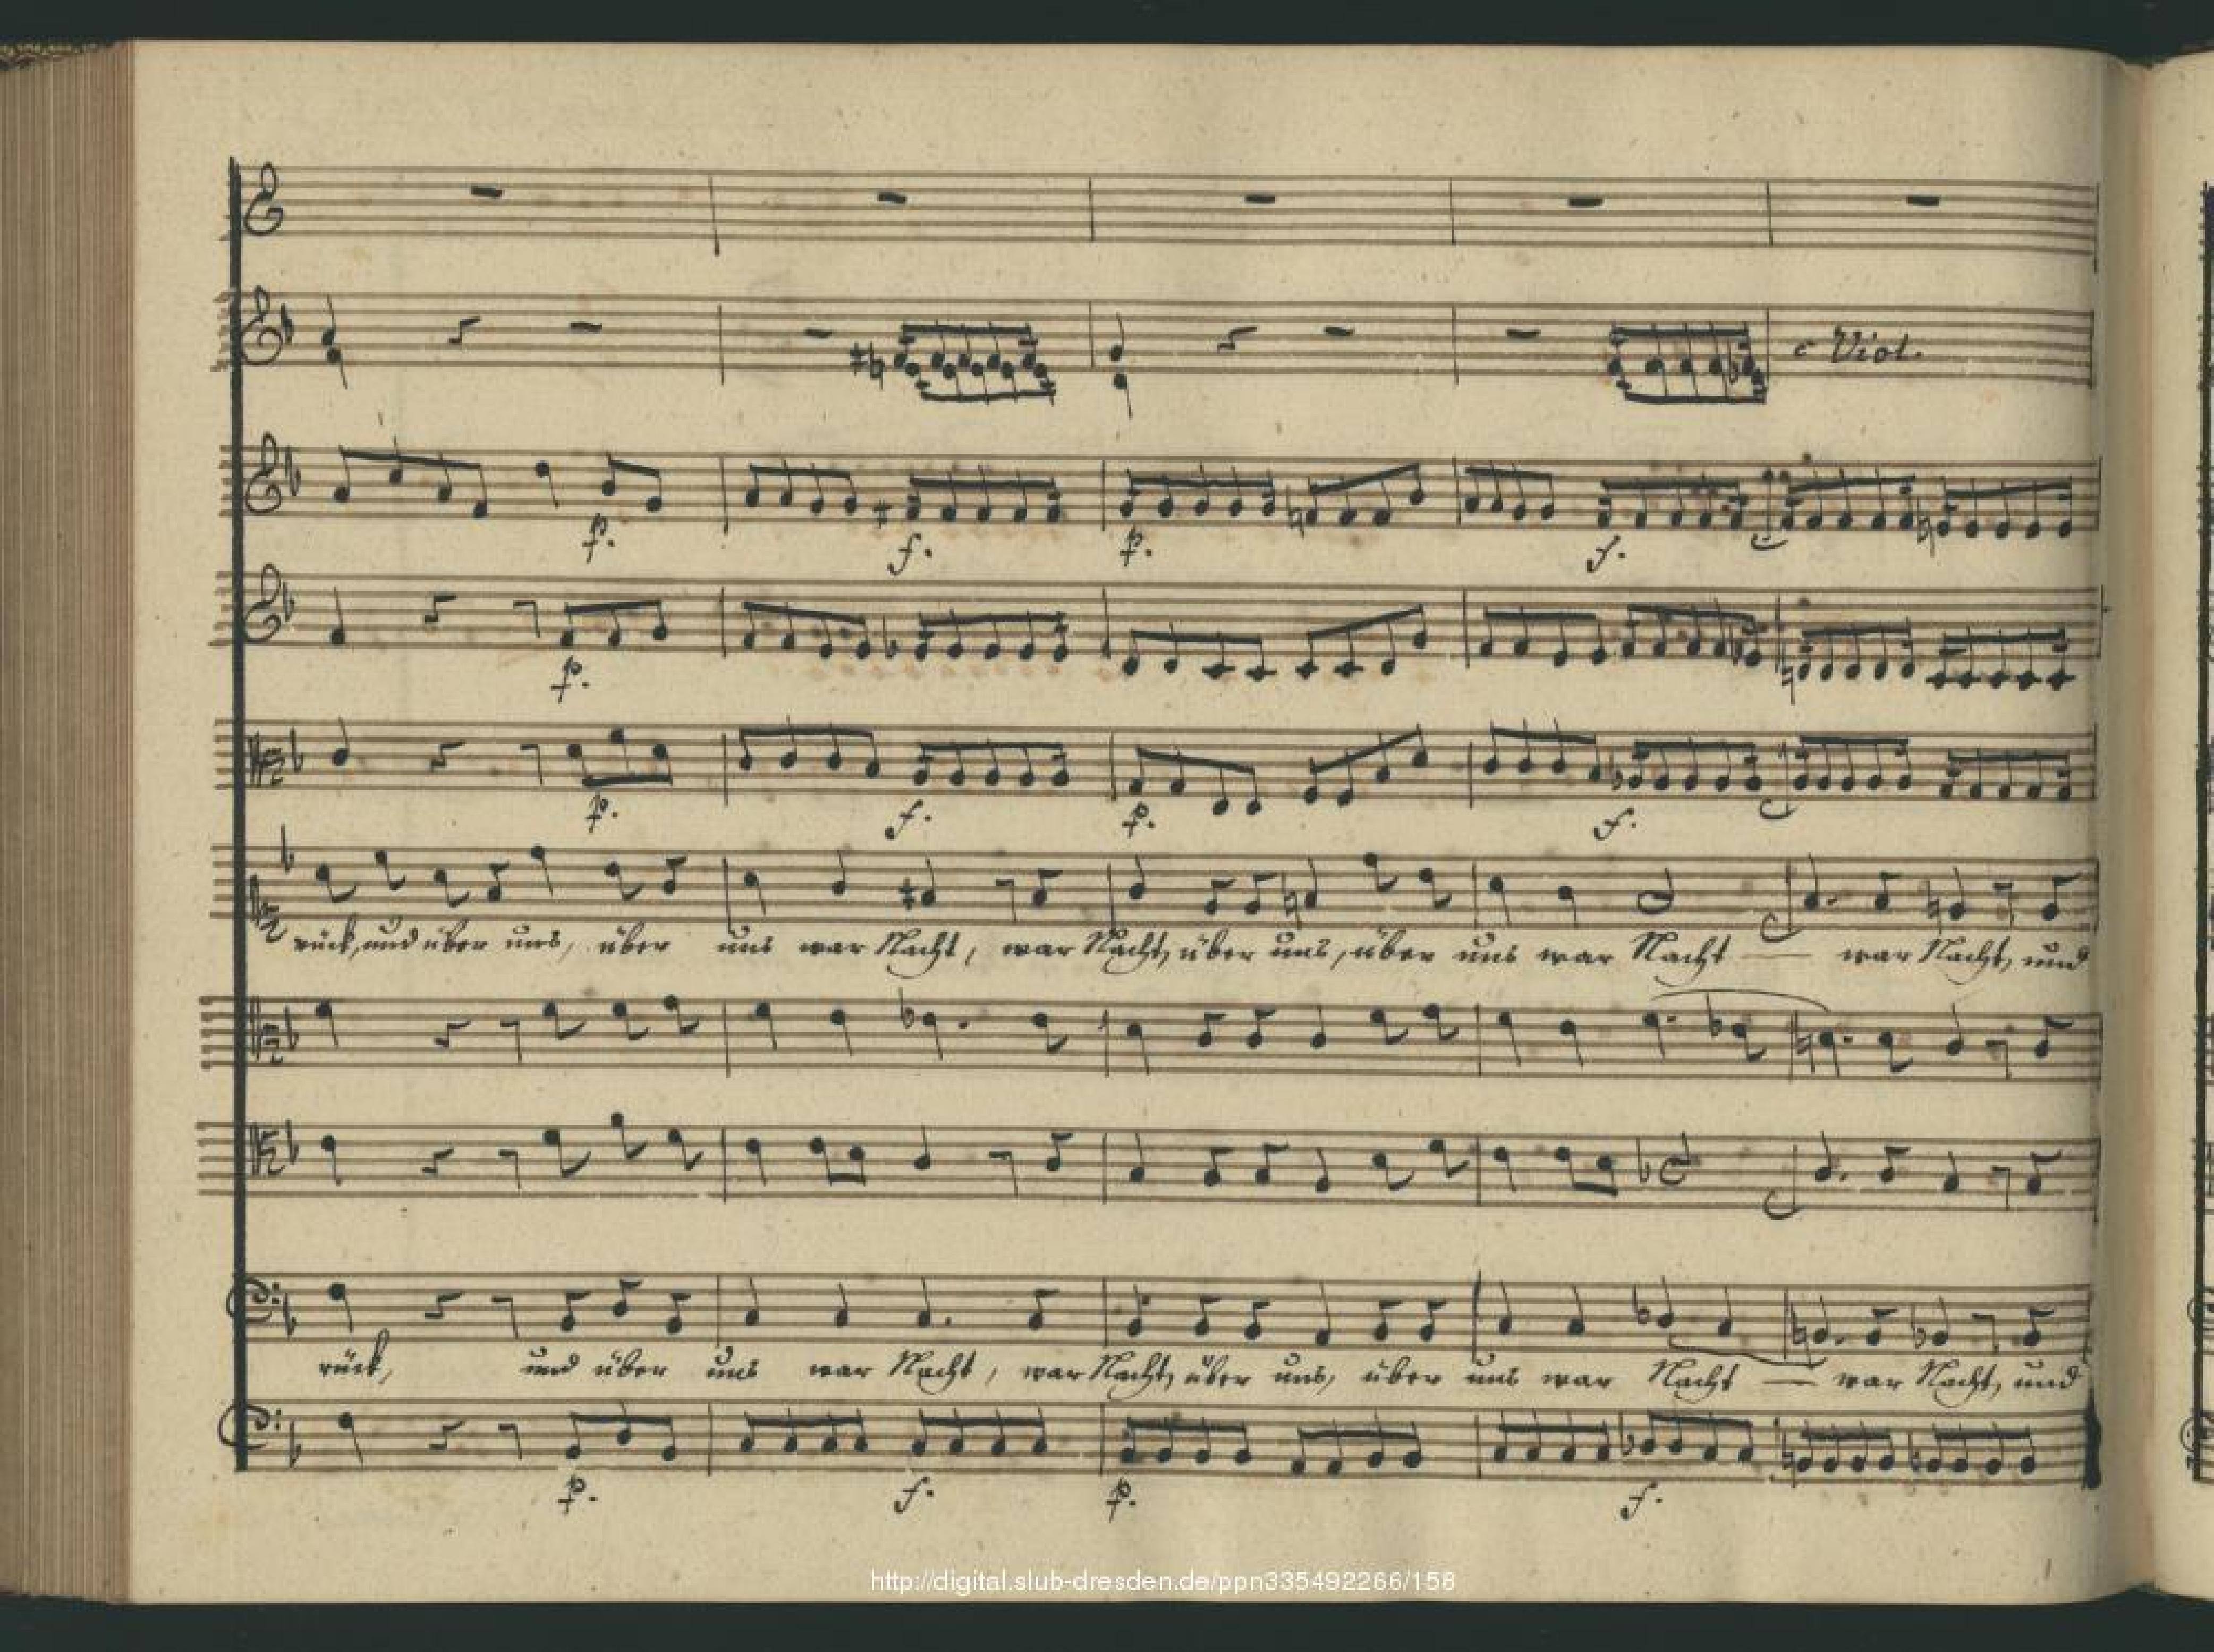 c Viol.
p. f. p. f.
p.
p. f. p. f.
rück, und über uns, über uns war Nacht, war Nacht, über uns, über uns war Nacht — war Nacht, und
rück, und über uns war Nacht, war Nacht, über uns, über uns war Nacht — war Nacht, und
p. f. p. f.
http://digital.slub-dresden.de/ppn335492266/158